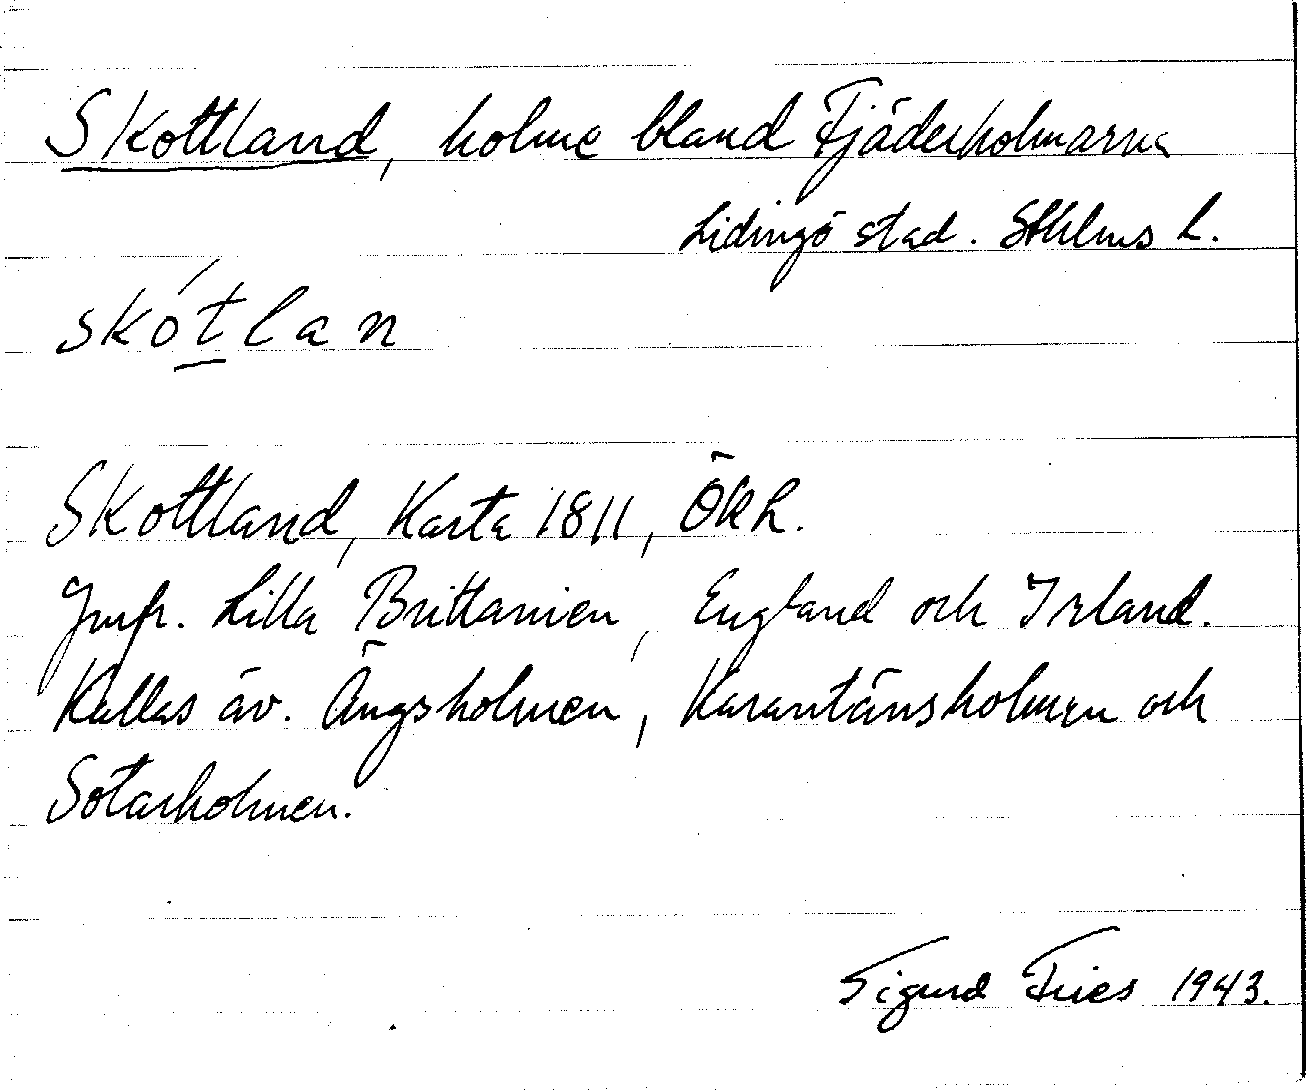 Skottland, holme bland Fjäderholmarna
Lidingö stad. Sthlms L.
skót̲lan
Skottland, Karta 1811, ÖKR.
Jmfr. Lilla Brittanien, England och Irland.
Kallas äv. Ängsholmen, Karantänsholmen och
Sotarholmen.
Sigurd Fries 1943.